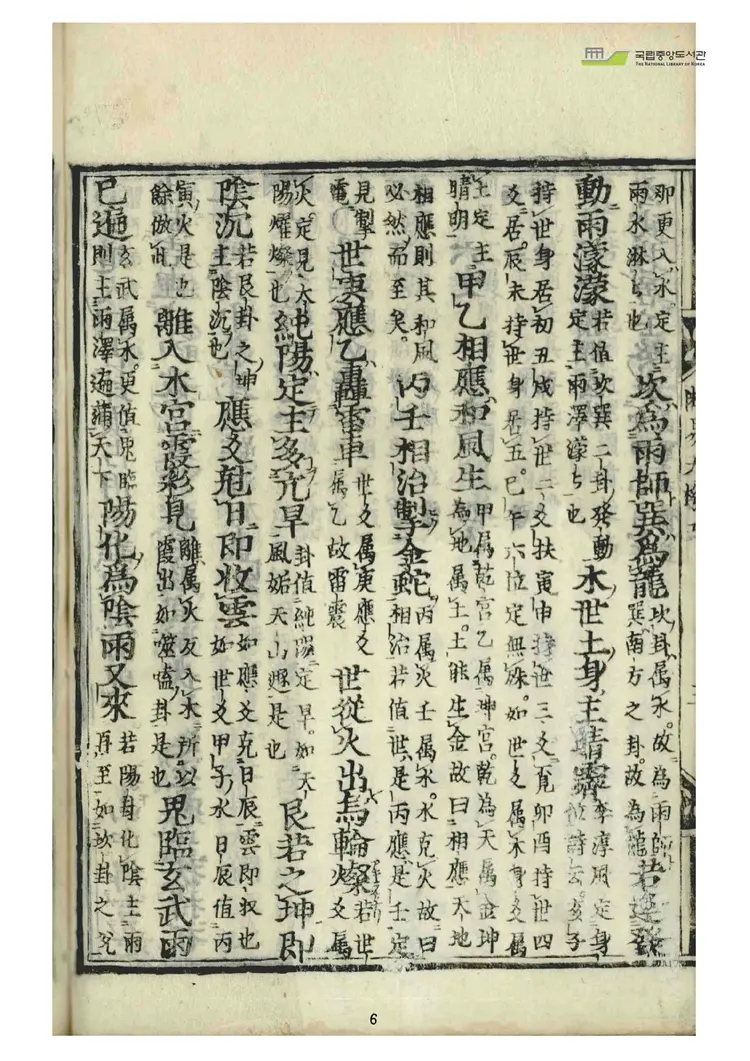 국립중앙도서관
THE NATIONAL LIBRARY OF KOREA
即更入水定主雨水淋々也坎為雨師巽為龍坎卦属水故為雨師巽南方之卦故為龍若逢發
動雨濛濛若值坎巽二卦発動定主雨澤濛々也水世土身主晴霽李淳風定身詩云子
持世身居初丑戌持世二爻扶寅申持世三爻覓卯酉持世四爻居辰未持世身居五巳午六位定無殊如世爻属水身爻属
土定主晴明甲乙相應和風生甲属乾宮乙属坤宮乾為天属金坤為地属土土能生金故曰相應天地
相應則其和風必然而至矣丙壬相治掣金蛇丙属火壬属水水克火故曰相治若值世是丙應是壬定
見掣電世庚應乙轟雷車世爻属庚應爻属乙故雷震世從火出烏輪燦若世火爻属
火定見太陽耀燦也純陽定主多亢旱卦值純陽定旱如天風姤天山遯是也艮若之坤即
陰沉若艮卦之坤主陰沉也應爻尅日即收雲如應爻克日辰雲即收也如世爻甲子水日辰值丙
寅火是也餘倣此離入水宮霞彩見離属火反入水所以霞出如噬嗑卦是也鬼臨玄武雨
已遍玄武属水更值鬼臨則主雨澤遍蒲天下陽化為陰雨又來若陽卦化陰主雨再至如坎卦之兌
6